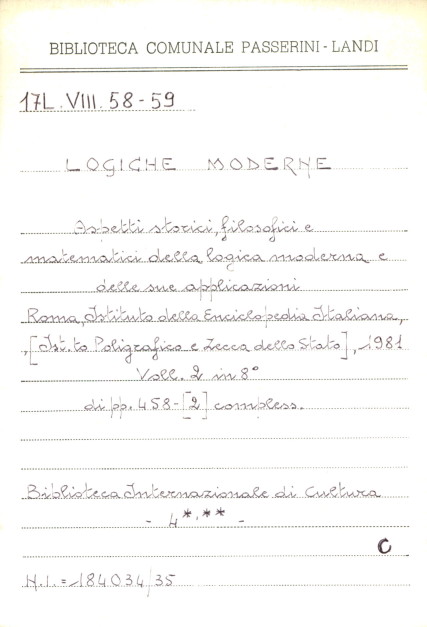 BIBLIOTECA COMUNALE PASSERINI - LANDI
17L. VIII. 58-59
LOGICHE MODERNE
Aspetti storici, filosofici e
matematici della logica moderna e
delle sue applicazioni
Roma, Istituto della Enciclopedia Italiana,
, [Ist.to Poligrafico e Zecca dello Stato], 1981
Voll. 2 in 8°
di pp. 458-[2] compless.
Biblioteca Internazionale di Cultura
- 4*.** -
C
N.I. = 184034/35